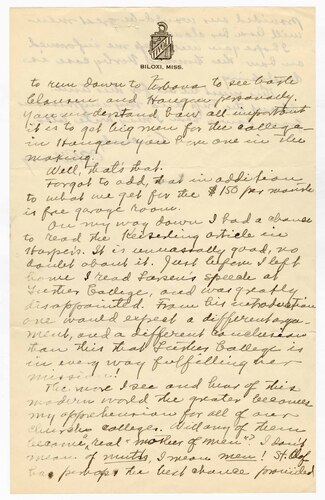 BILOXI, MISS.
to run down to Urbana to see
Clausen and Haugan personally.
You understand how all important
it is to get big men for the College
in Haugan you have one in the
making.
Well, that's that.
Forgot to add, that in addition
to what we get for the $150 per month
is free garage room.
On my way down I had a chance
to read the article in
Harpers. It is unusually good, no
doubt about it. Just before I left
home I read Larsen's speech at
Luther College, and was greatly
disappointed. From his introduction
one would expect a different argu-
ment, and a different conclusion
than this that Luther College is
in every way fulfilling her
mission!
The more I see and hear of this
modern world the greater becomes
my apprehension for all of our
church colleges. Will any of them
become real "mother of men"? I don't
mean of mutts, I mean men! St. Olaf
has perhaps the best chance provided